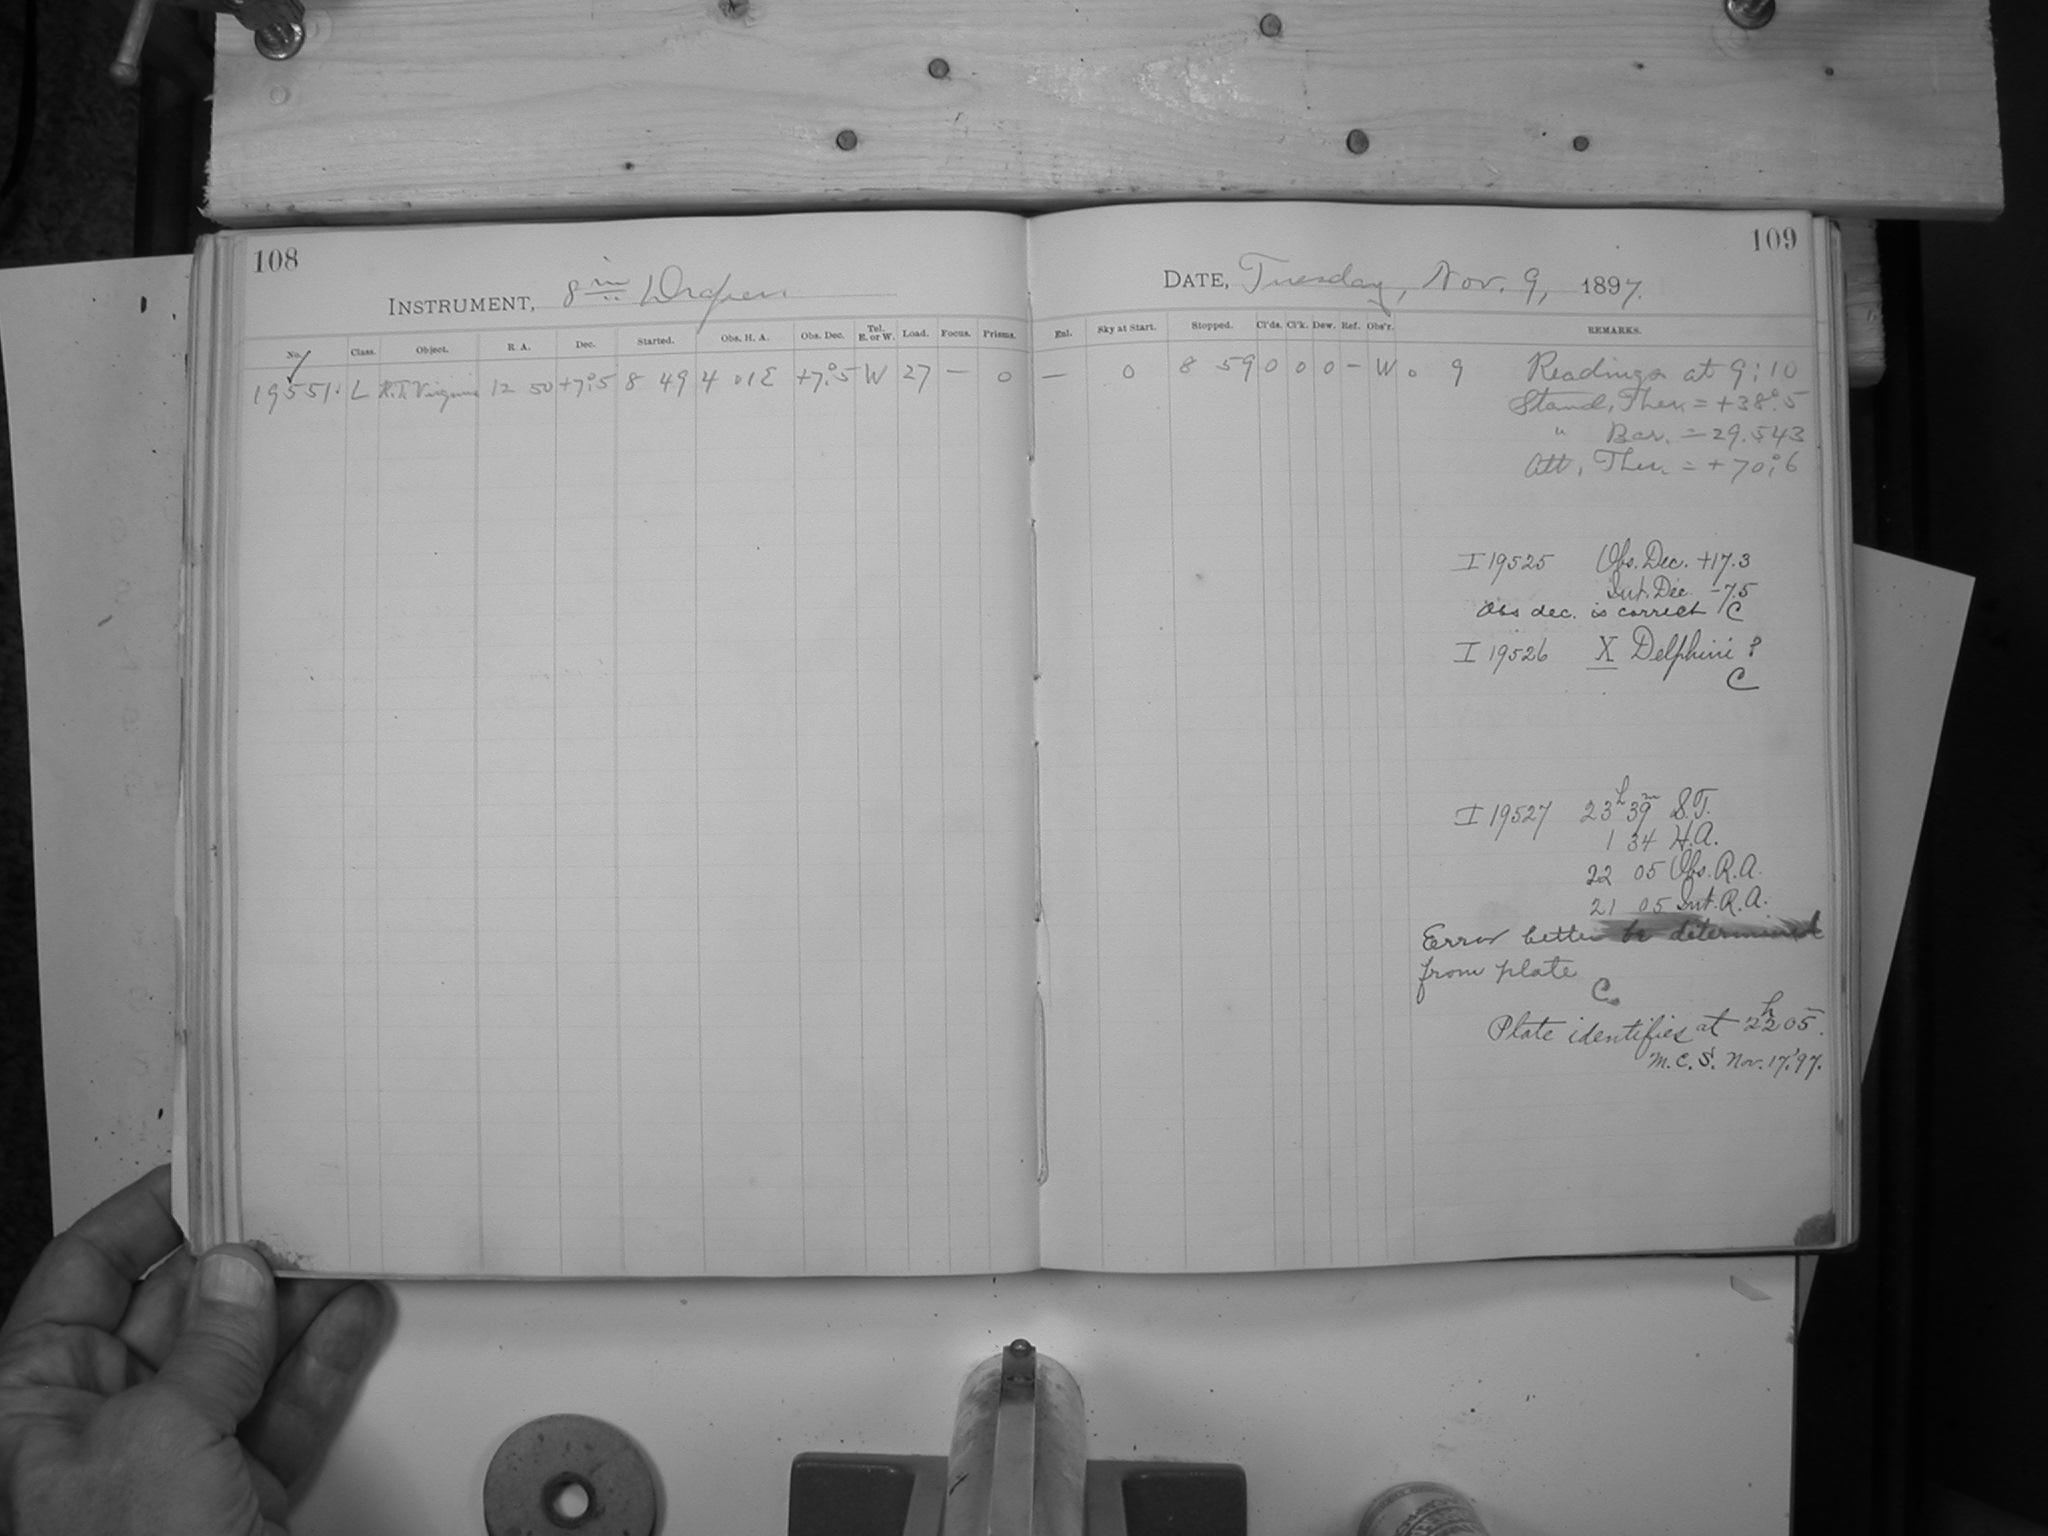 108
INSTRUMENT, 8 in Draper
No. Class. Object. R. A. Dec. Started. Obs. H. A. Obs. Dec. Tel. E. or W. Load. Focus. Prisms.
19551. L R.T. Virginis 12 50 +7°.5 8 49 4 01E +7°.5 W 27 — 0
109
DATE, Tuesday, Nov. 9, 1897.
Enl. Sky at Start. Stopped. Cl'ds. Cl'k. Dew. Ref. Obs'r. REMARKS.
— 0 8 59 0 0 0 – W. 9 Readings at 9:10
Stand, Ther. = +38°.5
" Bar. = 29.543
Att, Ther. = +70°.6
I 19525 Obs. Dec. +17.3
Int. Dec. -7.5
Obs dec. is correct C
I 19526 X Delphini ?
C
I 19527 23h 39m S.T.
1 34 H.A.
22 05 Obs. R.A.
21 05 Int. R.A.
Error better be determined
from plate
C.
Plate identifies at 22h 05m.
M.C.S. Nov. 17,'97.